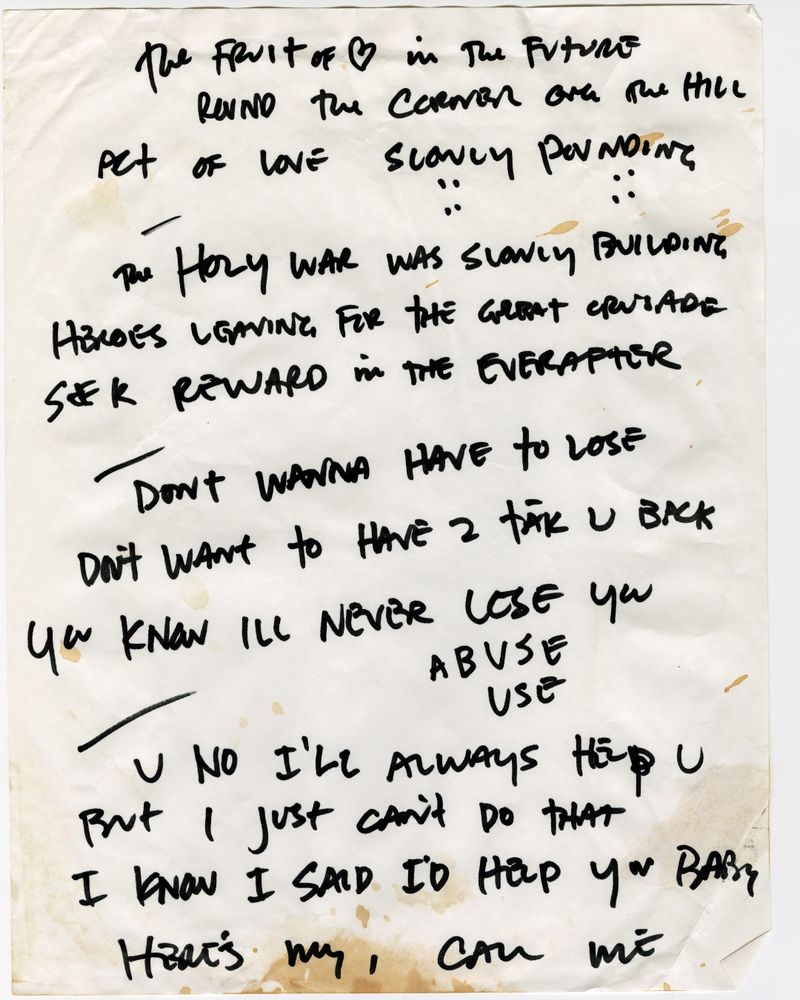 the FRUIT OF ♡ in The FUTURE
ROUND the CORNER over the HILL
Act OF LOVE SLOWLY POUNDING
The HOLY WAR WAS SLOWLY BUILDING
HEROES LEAVING FOR THE GREAT CRUSADE
SEEK REWARD in THE EVERAFTER
DON'T WANNA HAVE to LOSE
DON'T WANT to HAVE 2 tāk U BACK
You KNOW ILL NEVER LOSE you
ABUSE
USE
U NO I'LL ALWAYS HELP U
But I JUST CAN'T DO THAT
I KNOW I SAID I'D HELP you BABY
HERE'S my, CALL ME